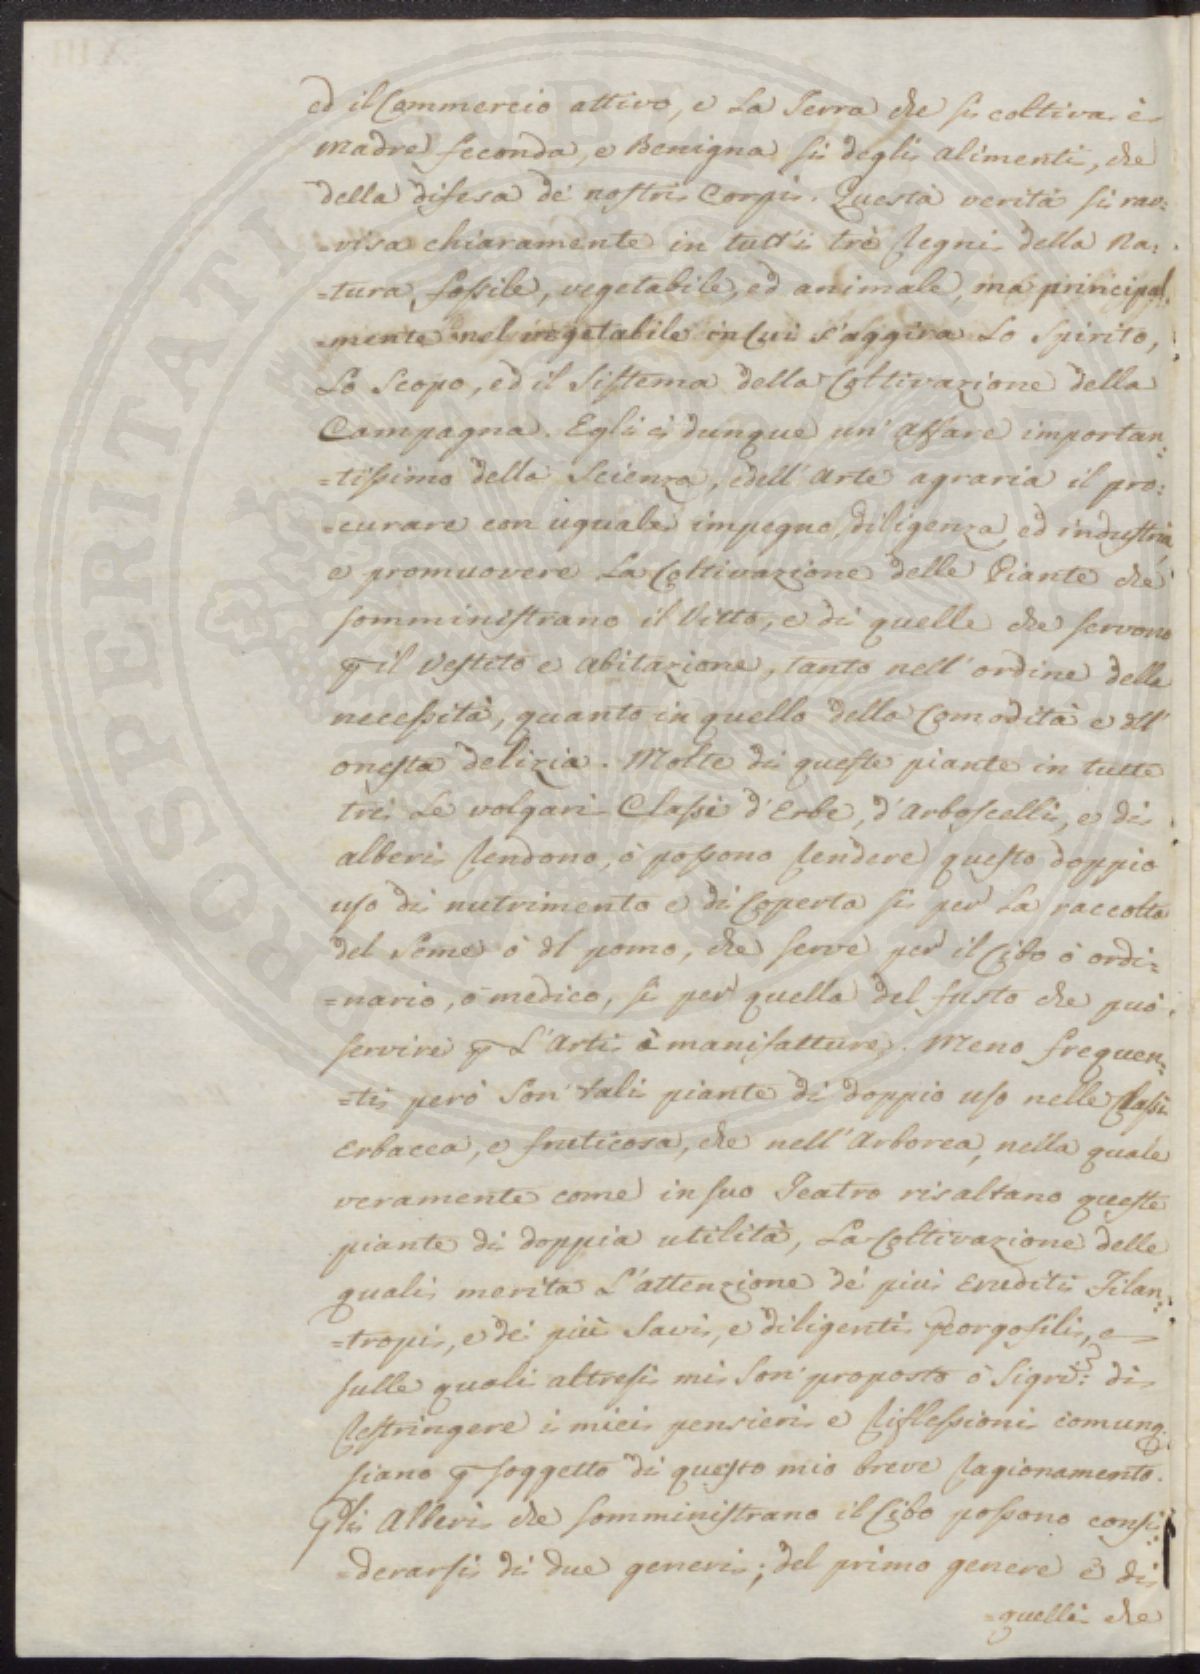 ed il Commercio attivo, e La Terra che si coltiva è
Madre feconda, e Benigna sì degli alimenti, che
della difesa de' nostri Corpi. Questa verità si rav=
=visa chiaramente in tutt'i trè Regni della Na=
=tura fossile, vegetabile, ed animale, ma principal=
=mente nel vegetabile in cui s'aggira Lo Spirito,
Lo Scopo, ed il Sistema della Coltivazione della
Campagna. Egli è dunque un' affare importan=
=tissimo della Scienza, e dell'Arte agraria il pro=
=curare con uguale impegno, diligenza, ed industria
e promuovere La Coltivazione delle Piante che
somministrano il Vitto, e di quelle che servono
p il Vestito e abitazione, tanto nell'ordine della
necessità, quanto in quello della Comodità e dll'
onesta delizia. Molte di queste piante in tutte
tre Le volgari Classi d'Erbe, d'Arboscelli, e di
alberi Rendono, ò possono Rendere questo doppio
uso di nutrimento e di Coperta sì per La raccolta
del Seme ò dl pomo, che serve per il Cibo ò ordi=
=nario, ò medico, sì per quella del fusto che può
servire p L'Arti ò manifatture. Meno frequen=
=ti però Son' tali piante di doppio uso nelle Classi
Erbacea, e fruticosa, che nell'Arborea, nella quale
veramente come in suo Teatro risaltano queste
piante di doppia utilità, La Coltivazione delle
quali merita L'attenzione de' più Eruditi Filan=
=tropi, e de' più Savi, e diligenti Georgofili, e
sulle quali altresì mi Son' proposto ò Sigri: di
Restringere i miei pensieri e Riflessioni comunq
siano p soggetto di questo mio breve Ragionamento.
Gli Alberi che somministrano il Cibo possono consi=
=derarsi di due generi; del primo genere è di
=quelli che
PROSPERITATI PUBLI